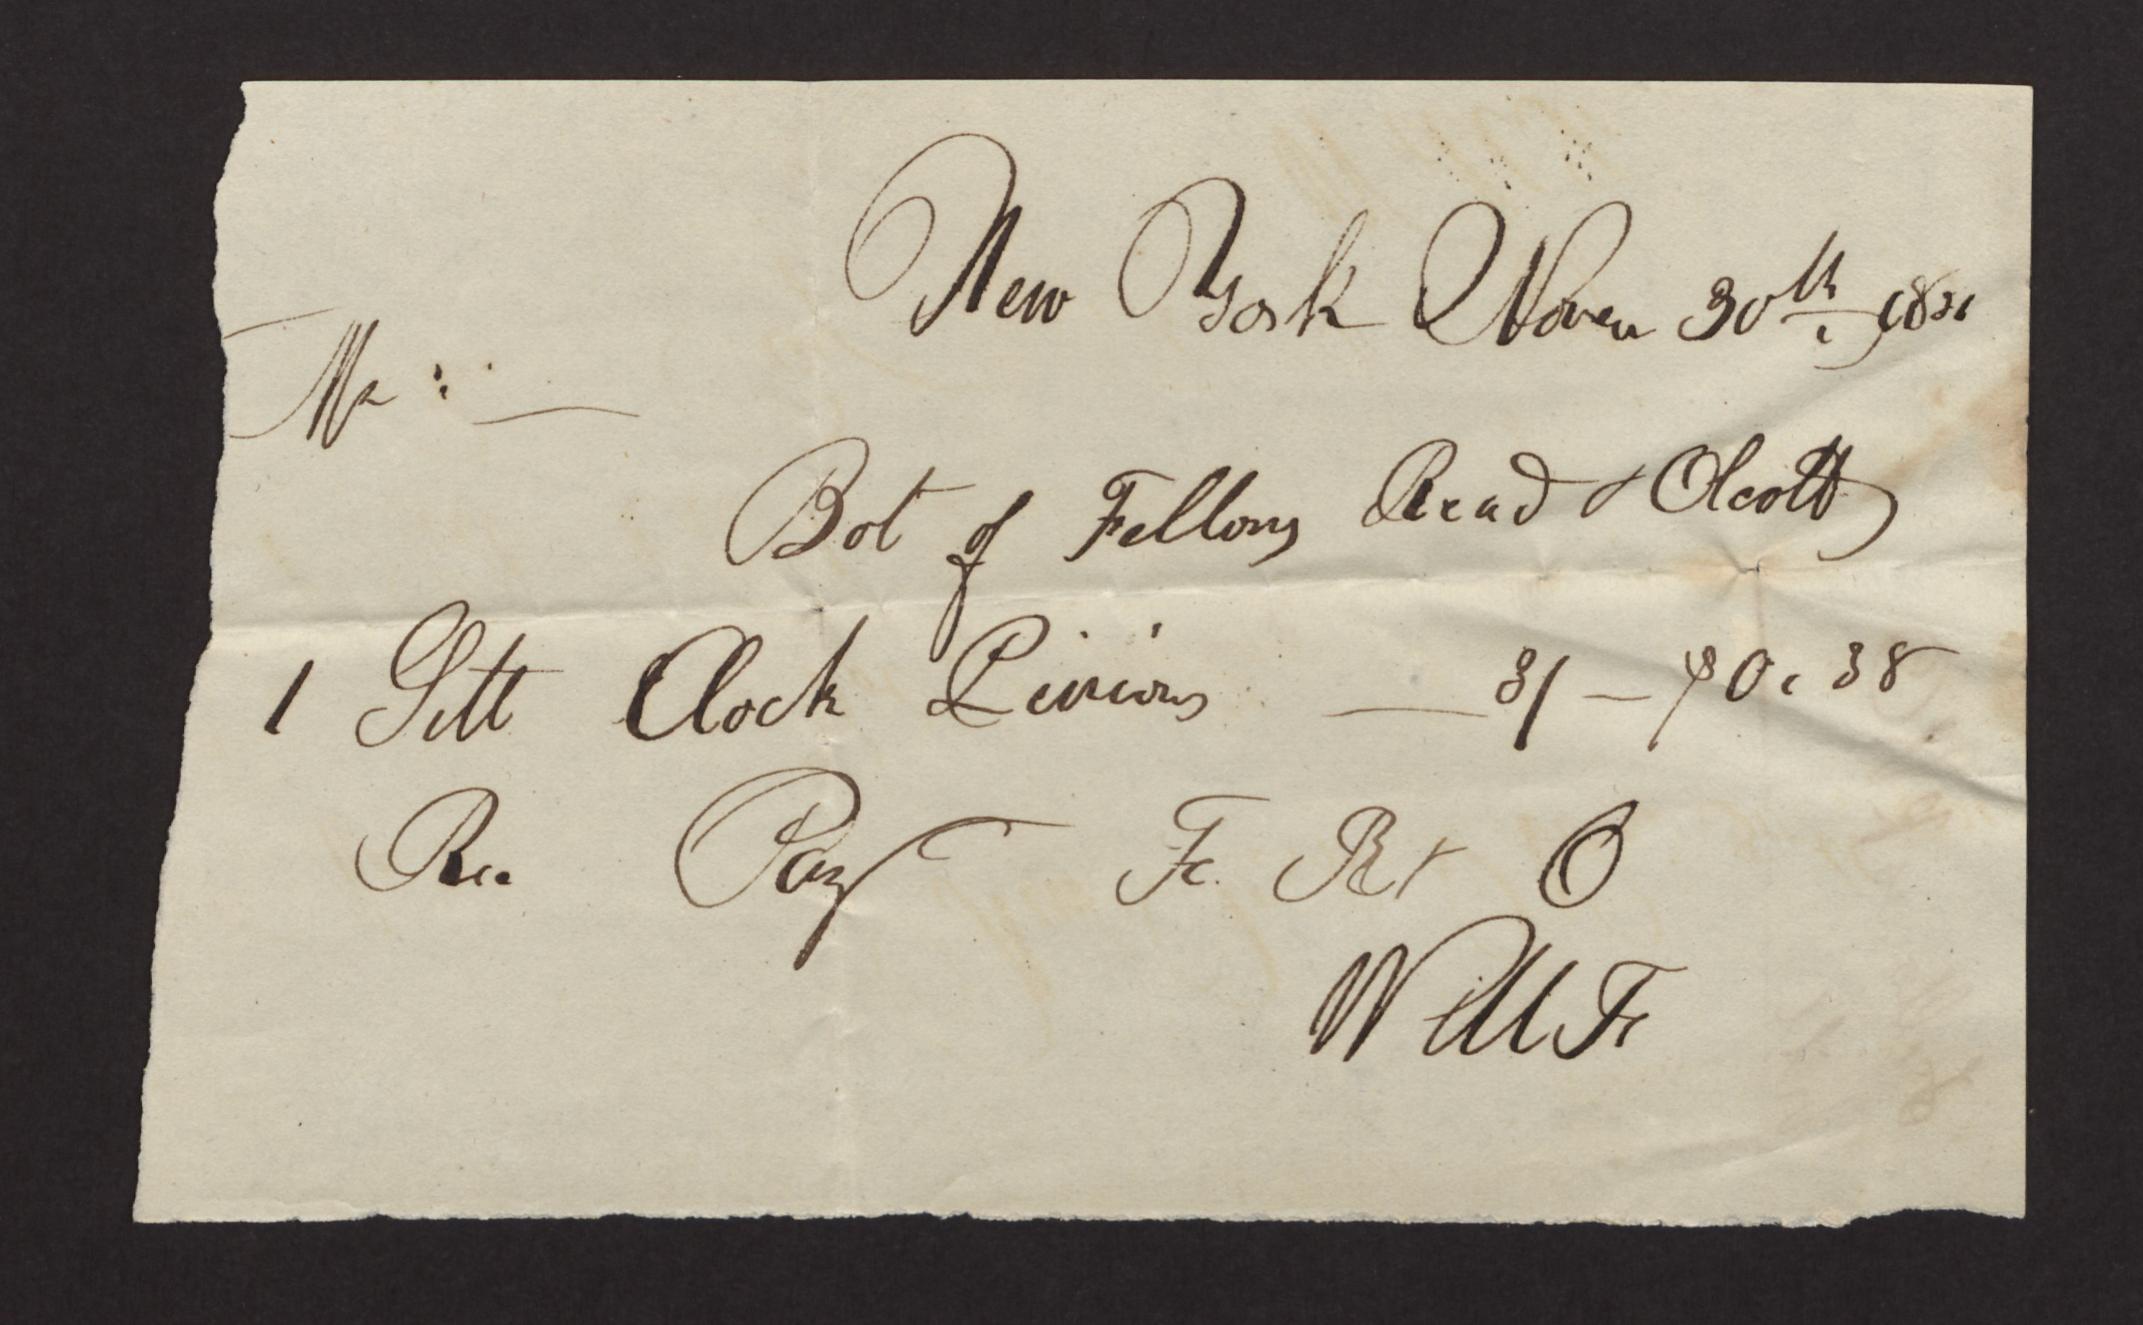 New York Novem 30th 1821
Mr : —
Bot of Fellows Read & Olcott
1 Sett Clock Pinions — 3/ — $0.38
Rec Pay F. R & O
Will F